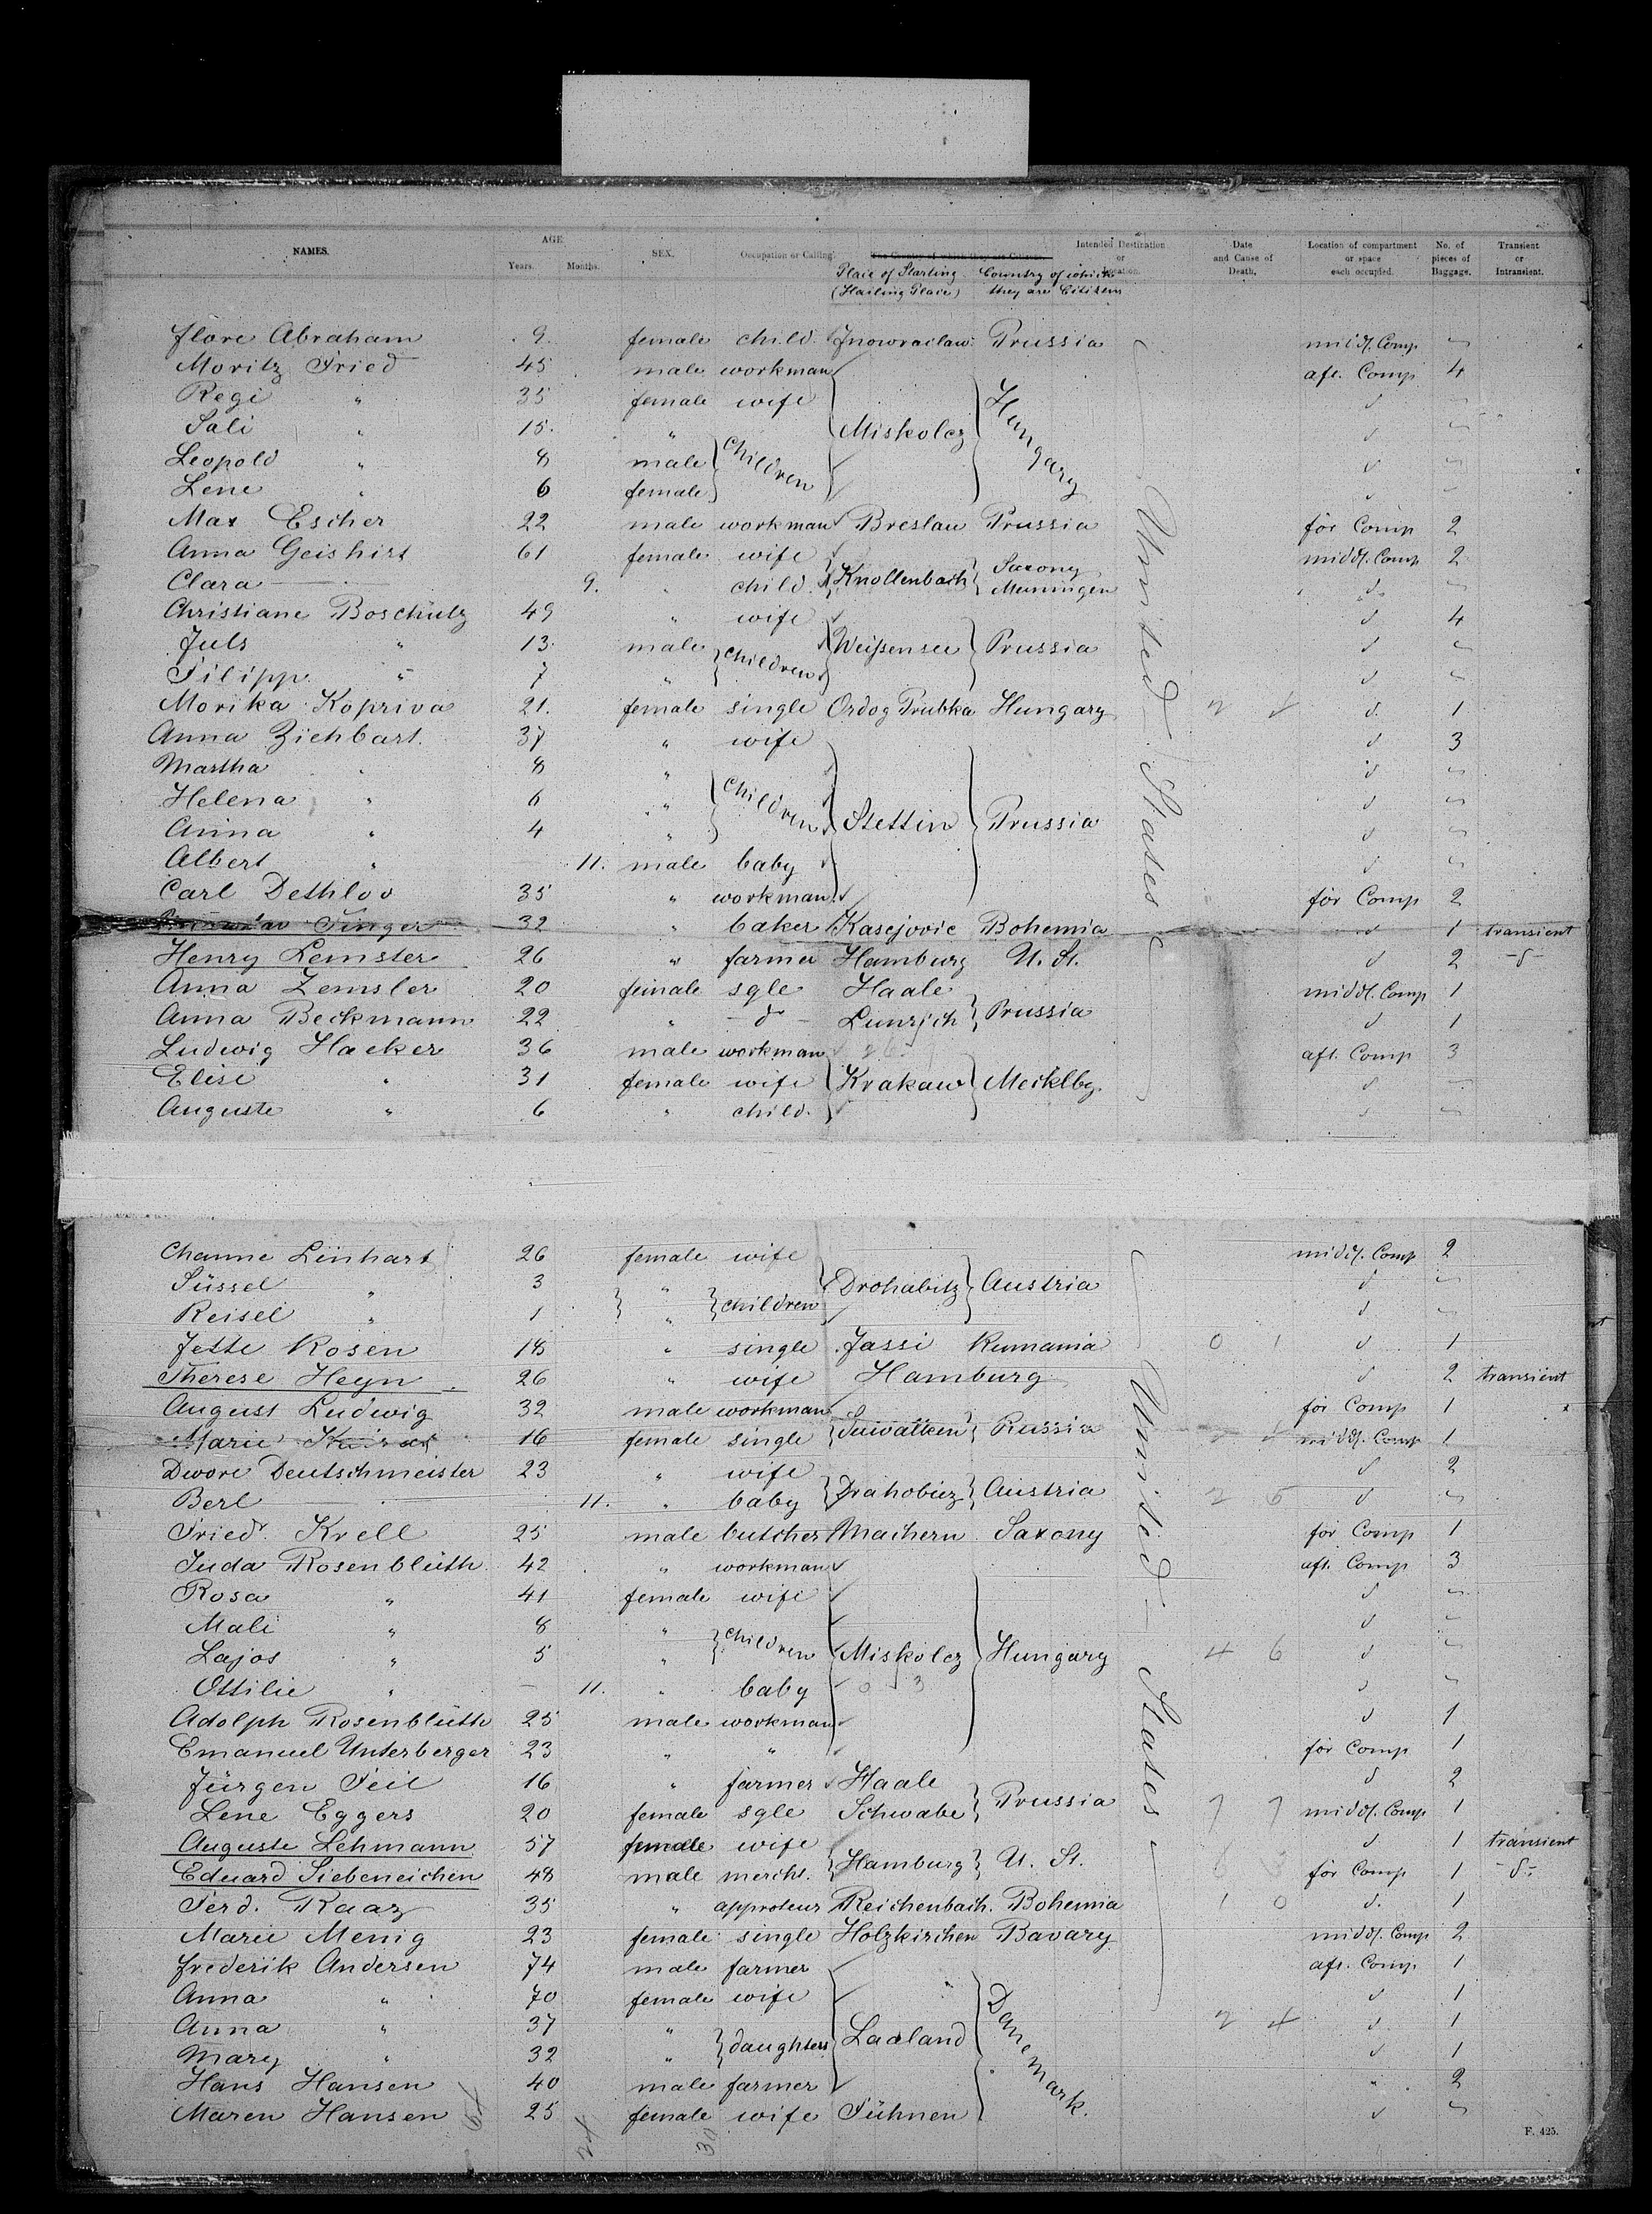 NAMES. AGE. Years. Months. SEX. Occupation or Calling. The Country of which they are Citizens. Intended Destination or Location. Date and Cause of Death. Location of compartment or space each occupied. No. of pieces of Baggage. Transient or Intransient.
Place of Starting (Hailing Place) Country of which they are Citizens
Flore Abraham 9. female child Inowraclaw Prussia middl. Comp "
Moritz Fried 45 male workman aft. Comp 4
Regi " 35 female wife d "
Sali " 15. " Miskolcz Hungary d "
Leopold " 8 male children d "
Lene " 6 female d "
Max Escher 22 male workman Breslau Prussia for Comp 2
Anna Geishirt 61 female wife Saxony middl. Comp 2
Clara " 9. " child Knollenbach Meiningen d "
Christiane Boschutz 49 " wife d 4
Juls " 13. male Weißensee Prussia d "
Filipp " 7 " children d "
Morika Kopriva 21. female single Ordog Prubka Hungary 2 4 d. 1
Anna Ziehbart. 37 " wife d 3
Martha " 8 " d "
Helena " 6 " children d "
Anna " 4 " Stettin Prussia d "
Albert " 11. male baby d "
Carl Dethloo 35 " workman for Comp 2
Singer 32 " baker Kasejovic Bohemia d 1 transient
Henry Lemster 26 " farmer Hamburg U. St. d 2 -d-
Anna Zemsler 20 female sgle Haale middl. Comp 1
Anna Beckmann 22 " d - Lunzich Prussia d 1
Ludwig Hacker 36 male workman aft. Comp 3
Elise " 31 female wife Krakaw Mecklbg. d "
Auguste " 6 " child. d "
United States
Channe Linhart 26 female wife middl. Comp 2
Süssel " 3 " Drohabitz Austria d "
Reisel " 1 " children d "
Jette Rosen 18 " single Jassi Rumania 0 1 d 1
Therese Heyn 26 " wife Hamburg d 2 transient
August Ludwig 32 male workman for Comp 1
Marie 16 female single Suwalken Russia middl. Comp 1
Dwore Deutschmeister 23 " wife d 2
Berl " 11. " baby Drahobicz Austria 2 5 d "
Friedr. Krell 25 male butcher Machern Saxony for Comp 1
Juda Rosenblüth 42 " workman aft. Comp 3
Rosa " 41 female wife d "
Mali " 8 " children d "
Lajos " 5 " Miskolcz Hungary 4 6 d "
Ottilie " 11. " baby 0 3 d "
Adolph Rosenblüth 25 male workman d 1
Emanuel Unterberger 23 " " for Comp 1
Jürgen Feil 16 " farmer Haale d 2
Lene Eggers 20 female sgle Schwabe Prussia 7 7 middl. Comp 1
Auguste Lehmann 57 female wife d 1 transient
Eduard Siebeneichen 48 male mercht. Hamburg U. St. for Comp 1 -d-
Ferd. Kaaz 35 " approteur Reichenbach. Bohemia 1 0 d. 1
Marie Menig 23 female single Holzkirchen Bavary middl. Comp 2
Frederik Andersen 74 male farmer aft. Comp 1
Anna " 70 female wife d 1
Anna " 37 " Laaland Danemark. 2 4 d. 1
Mary " 32 " daughters d 1
Hans Hansen 40 male farmer " 2
Maren Hansen 25 female wife Fühnen d "
United States
54 24 30
F. 425.